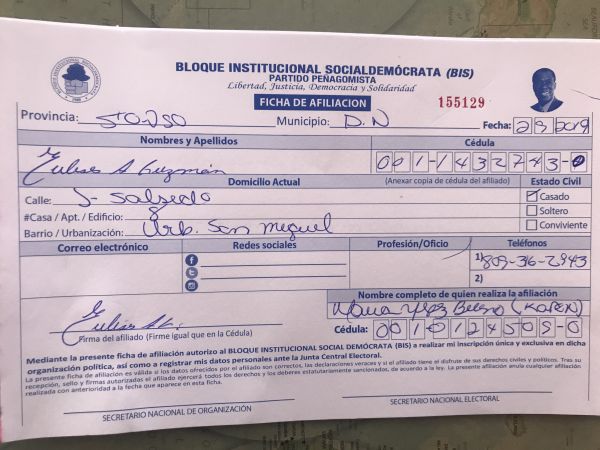 BLOQUE INSTITUCIONAL SOCIALDEMÓCRATA (BIS)
PARTIDO PEÑAGOMISTA
Libertad, Justicia, Democracia y Solidaridad
FICHA DE AFILIACION 155129
Provincia: STO-DGO Municipio: D.N Fecha: 2 9 2019
Nombres y Apellidos Cédula
Eulises A Guzmán 001-1432743-0
Domicilio Actual (Anexar copia de cédula del afiliado) Estado Civil
Calle: J- Salsedo Casado
#Casa / Apt. / Edificio: 8 Soltero
Barrio / Urbanización: Urb. San Miguel Conviviente
Correo electrónico Redes sociales Profesión/Oficio Teléfonos
1) 809-316-2943
2)
Nombre completo de quien realiza la afiliación
Maria (KAREN)
Firma del afiliado (Firme igual que en la Cédula) Cédula: 00101245080
Mediante la presente ficha de afiliación autorizo al BLOQUE INSTITUCIONAL SOCIAL DEMÓCRATA (BIS) a realizar mi inscripción única y exclusiva en dicha
organización política, así como a registrar mis datos personales ante la Junta Central Electoral.
La presente ficha de afiliación es válida si los datos ofrecidos por el afiliado son correctos, las declaraciones veraces y si el afiliado tiene el disfrute de sus derechos civiles y políticos. Tras su
recepción, sello y firmas autorizadas el afiliado ejercerá todos los derechos y los deberes estatutariamente sancionados, de acuerdo a la ley. La presente afiliación anula cualquier afiliación
realizada con anterioridad a la fecha que aparece en esta ficha.
SECRETARIO NACIONAL DE ORGANIZACIÓN SECRETARIO NACIONAL ELECTORAL